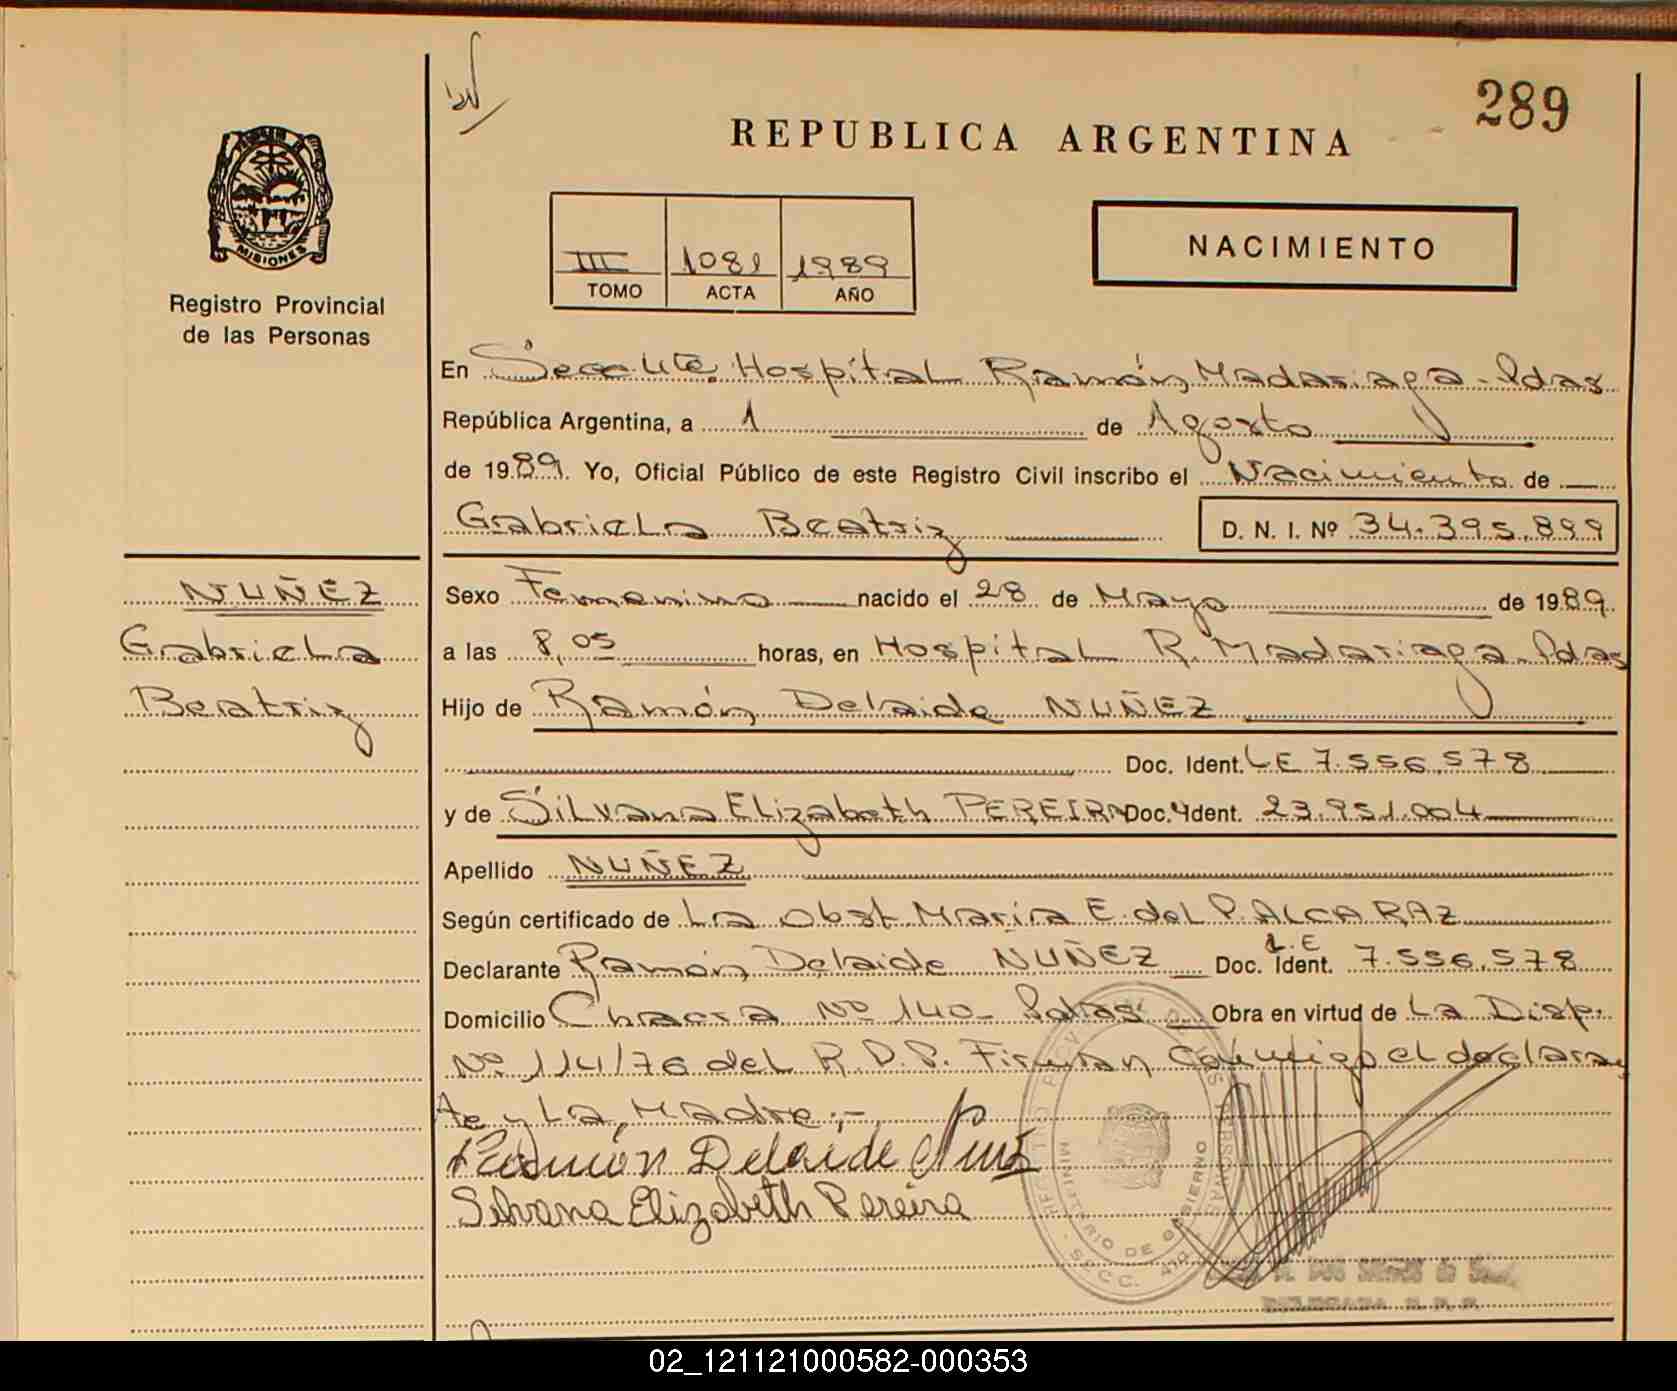 289
REPUBLICA ARGENTINA
MISIONES
Registro Provincial
de las Personas
III 1081 1989
TOMO ACTA AÑO
NACIMIENTO
En Secc. Hospital Ramón Madariaga - Pdas
República Argentina, a 1 de Agosto
de 1989. Yo, Oficial Público de este Registro Civil inscribo el Nacimiento de
Gabriela Beatriz D. N. I. Nº 34.395.899
NUÑEZ
Gabriela
Beatriz
Sexo Femenino nacido el 28 de Mayo de 1989
a las 8,05 horas, en Hospital R. Madariaga - Pdas
Hijo de Ramón Delaide NUÑEZ
Doc. Ident. LE 7.556.578
y de Silvana Elizabeth PEREIRA Doc. Ident. 23.951.004
Apellido NUÑEZ
Según certificado de La Obst. María E. del P. ALCARAZ
Declarante Ramón Delaide NUÑEZ Doc. Ident. L.E 7.556.578
Domicilio Chacra Nº 140 - Pdas Obra en virtud de La Disp.
Nº 114/76 del R.D.P. Firman conmigo el declaran
te y La Madre.-
Ramón Delaide Nuñez
Silvana Elizabeth Pereira
MINISTERIO DE GOBIERNO
02_121121000582-000353